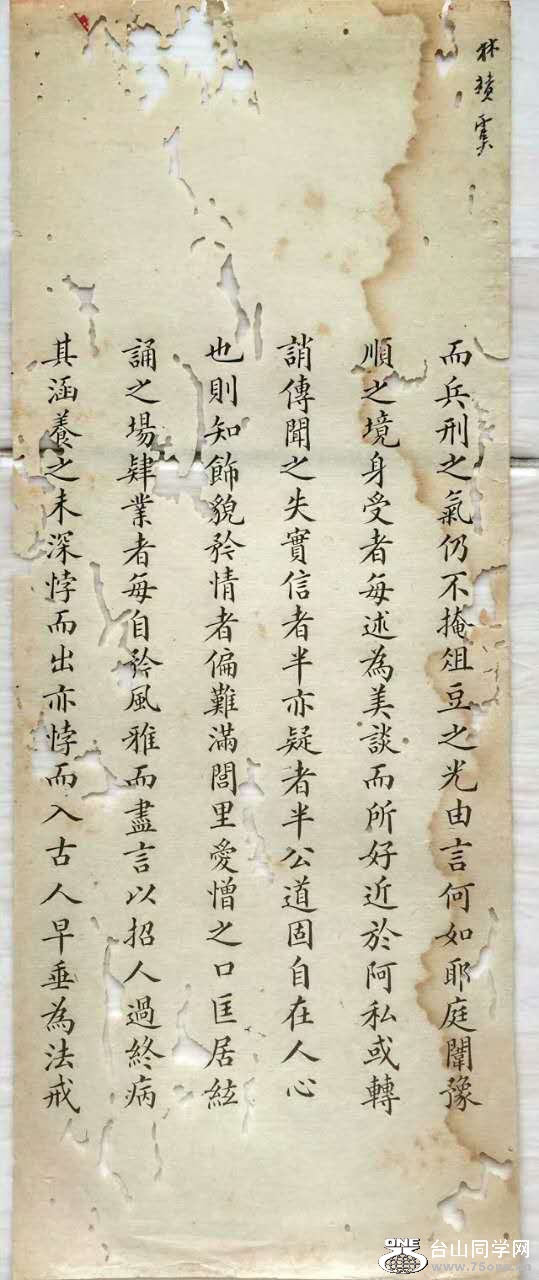 林贊雲
而兵刑之氣仍不掩俎豆之光由言何如耶庭闈豫
順之境身受者每述為美談而所好近於阿私或轉
誚傳聞之失實信者半亦疑者半公道固自在人心
也則知飾貌矜情者偏難滿閭里愛憎之口匡居絃
誦之場肆業者每自矜風雅而盡言以招人過終病
其涵養之未深悖而出亦悖而入古人早垂為法戒
ONE
台山同学网